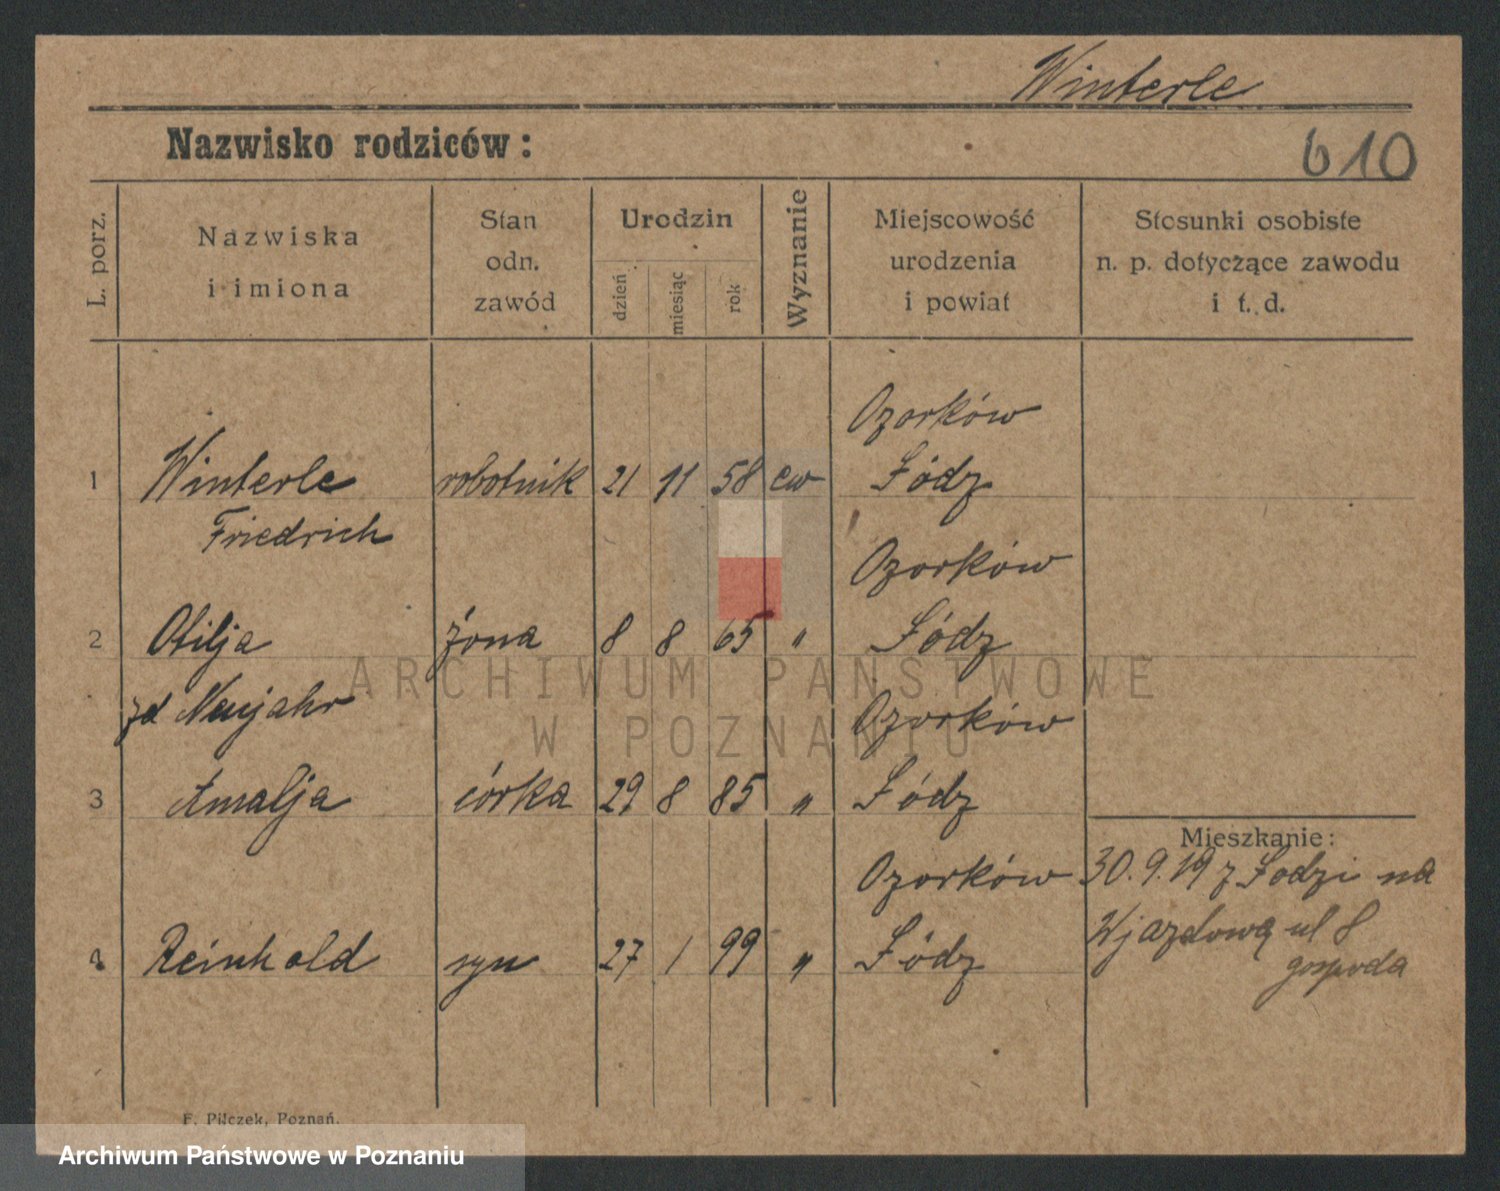 Winterle
Nazwisko rodziców:
610
L. porz.
Nazwiska
i imiona
Stan
odn.
zawód
Urodzin
dzień
miesiąc
rok
Wyznanie
Miejscowość
urodzenia
i powiat
Stosunki osobiste
n. p. dotyczące zawodu
i t. d.
Ozorków
1 Winterle robotnik 21 11 58 ew Łódz
Friedrich
Ozorków
2 Otilja żona 8 8 65 " Łódz
zd Neujahr Ozorków
3 Amalja córka 29 8 85 " Łódz
Mieszkanie:
Ozorków 30.9.19 z Łodzi na
Wjazdową ul 8
4 Reinhold syn 27 1 99 " Łódz gospoda
ARCHIWUM PAŃSTWOWE
W POZNANIU
F. Pilczek, Poznań.
Archiwum Państwowe w Poznaniu